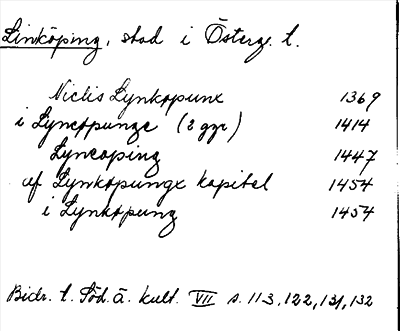 Linköping, stad i Österg. l.
Niclis Lynkopunx 1369
i Lyncopunge (2 ggr) 1414
Lyncoping 1447
af Lynköpungx kapitel 1454
i Lynköpung 1454
Bidr. t. Söd. ä. kult. VII s. 113, 122, 131, 132